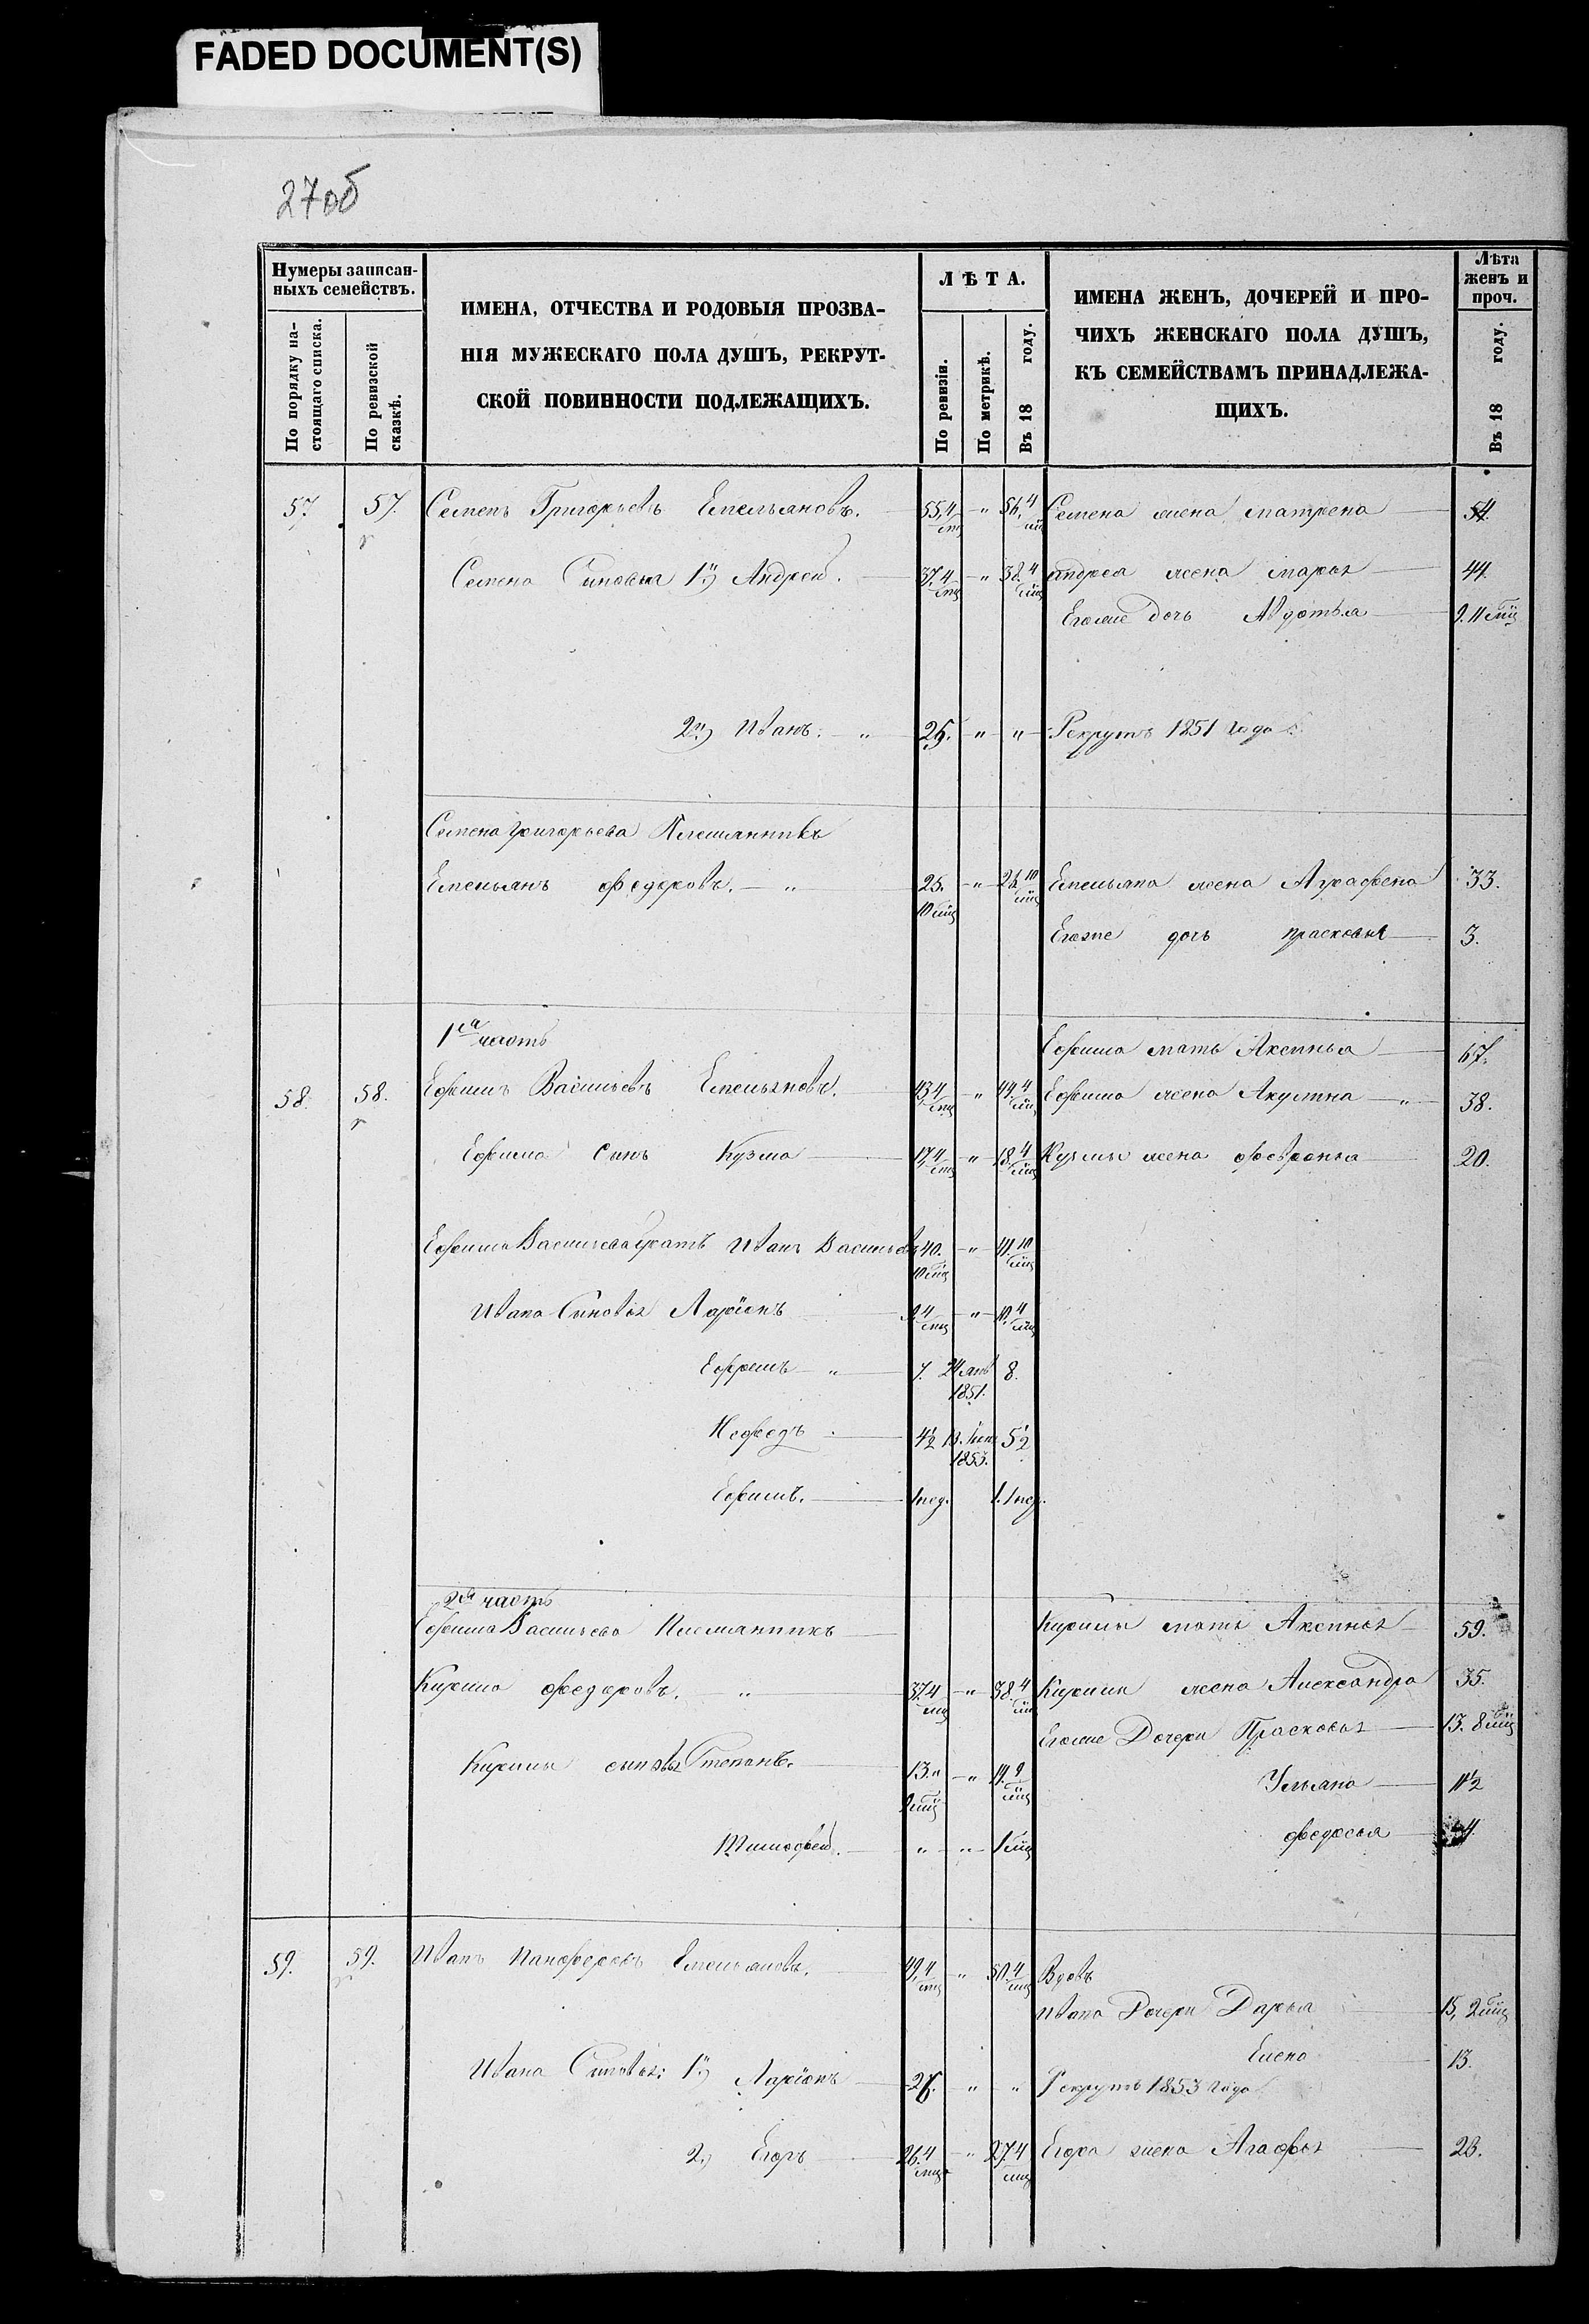 FADED DOCUMENT(S)
27об
Нумеры записан-
ныхъ семействъ.
По порядку на-
стоящаго списка.
По ревизской
сказкѣ.
ИМЕНА, ОТЧЕСТВА И РОДОВЫЯ ПРОЗВА-
НІЯ МУЖЕСКАГО ПОЛА ДУШЪ, РЕКРУТ-
СКОЙ ПОВИННОСТИ ПОДЛЕЖАЩИХЪ.
ЛѢТА.
По ревизіи.
По метрикѣ.
Въ 18 году.
ИМЕНА ЖЕНЪ, ДОЧЕРЕЙ И ПРО-
ЧИХЪ ЖЕНСКАГО ПОЛА ДУШЪ,
КЪ СЕМЕЙСТВАМЪ ПРИНАДЛЕЖА-
ЩИХЪ.
Лѣта
женъ и
проч.
Въ 18 году.
57. 57. Семенъ Григорьевъ Емельяновъ. 55,4 мц " 56,4 мц Семена жена матрена 54.
Семена Синовья 1й) Андрей. 37,4 мц " 38,4 мц андрея жена марья 44.
Егоже дочь Авдотья 9. 11 мц
2й) Иванъ. " 25. " " Рекрутъ 1851 года
Семена григорьева Племянникъ
Емельянъ федоровъ. " 25. 10 мц " 26,10 мц Емельяна жена Аграфена 33.
Егоже дочь прасковья 3.
1я часть
Ефима мать Аксинья 67.
58. 58. Ефимъ Васильевъ Емельяновъ. 43,4 мц " 44,4 мц Ефима жена Акулина " 38.
Ефима синъ Кузма 17,4 мц " 18,4 мц Кузмы жена февронья 20.
Ефима Васильева братъ Иванъ Васильевъ 40. 10 мц " 41.10 мц
Ивана Синовья Ларіонъ 9,4 мц " 10,4 мц
Ефремъ " 7. 24 янв 1851. 8.
Нефедъ 4½ 13. 1853. 5½
Ефимъ. 1 нед. 1. 1 нед.
2я часть
Ефима Васильева Племянникъ
Кирилы мать Аксинья 59.
Кирила федоровъ. " 37.4 мц " 38.4 мц Кирилы жена Александра 35.
Егоже Дочери Прасковья 13. 8 мц
Кирилы сыновья Степанъ. 13. 9 мц " 14. 9 мц
Ульяна 11½
Тимофей. " " 1 мц
федосья 4
59. 59. Иванъ Панферовъ Емельяновъ. 49,4 мц " 50.4 мц Вдовъ
Ивана Дочери Дарья 15, 2 мц
Елена 13.
Ивана Синовья: 1й) Ларіонъ " " Рекрутъ 1853 года
2) Егоръ 26.4 мц " 27.4 мц Егора жена Агафья 28.